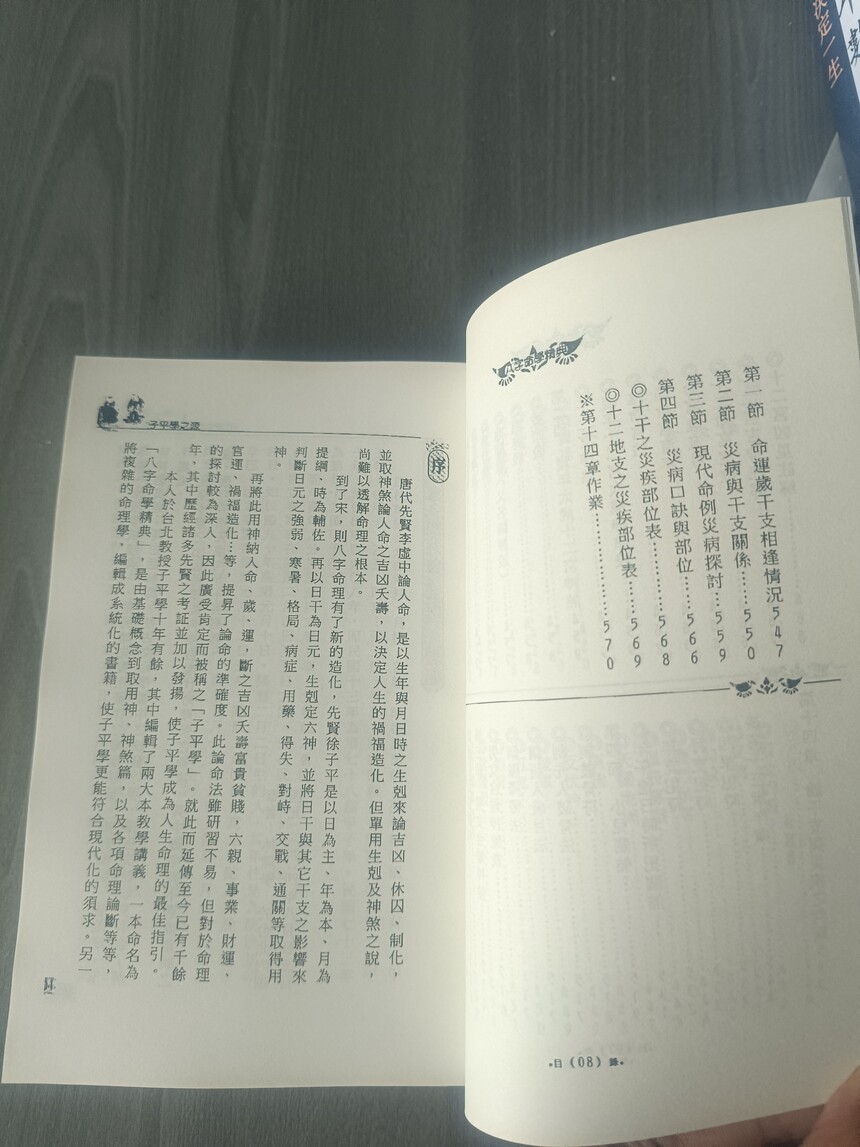 決定一生
八字命學精典
第一節　命運歲干支相逢情況547
第二節　災病與干支關係……550
第三節　現代命例災病探討…559
第四節　災病口訣與部位……566
◎十干之災疾部位表…………568
◎十二地支之災疾部位表……569
※第十四章作業………………570
•目(08)錄•
子平學之源
序
唐代先賢李虛中論人命，是以生年與月日時之生剋來論吉凶、休囚、制化，
並取神煞論人命之吉凶夭壽，以決定人生的禍福造化。但單用生剋及神煞之說，
尚難以透解命理之根本。
到了宋，則八字命理有了新的造化，先賢徐子平是以日為主、年為本、月為
提綱、時為輔佐。再以日干為日元，生剋定六神，並將日干與其它干支之影響來
判斷日元之強弱、寒暑、格局、病症、用藥、得失、對峙、交戰、通關等取得用
神。
再將此用神納人命、歲、運，斷之吉凶夭壽富貴貧賤，六親、事業、財運，
官運、禍福造化…等，提昇了論命的準確度。此論命法雖研習不易，但對於命理
的探討較為深入，因此廣受肯定而被稱之「子平學」。就此而延傳至今已有千餘
年，其中歷經諸多先賢之考証並加以發揚，使子平學成為人生命理的最佳指引。
本人於台北教授子平學十年有餘，其中編輯了兩大本教學講義，一本命名為
「八字命學精典」，是由基礎概念到取用神、神煞篇，以及各項命理論斷等等，
將複雜的命理學，編輯成系統化的書籍，使子平學更能符合現代化的須求。另一